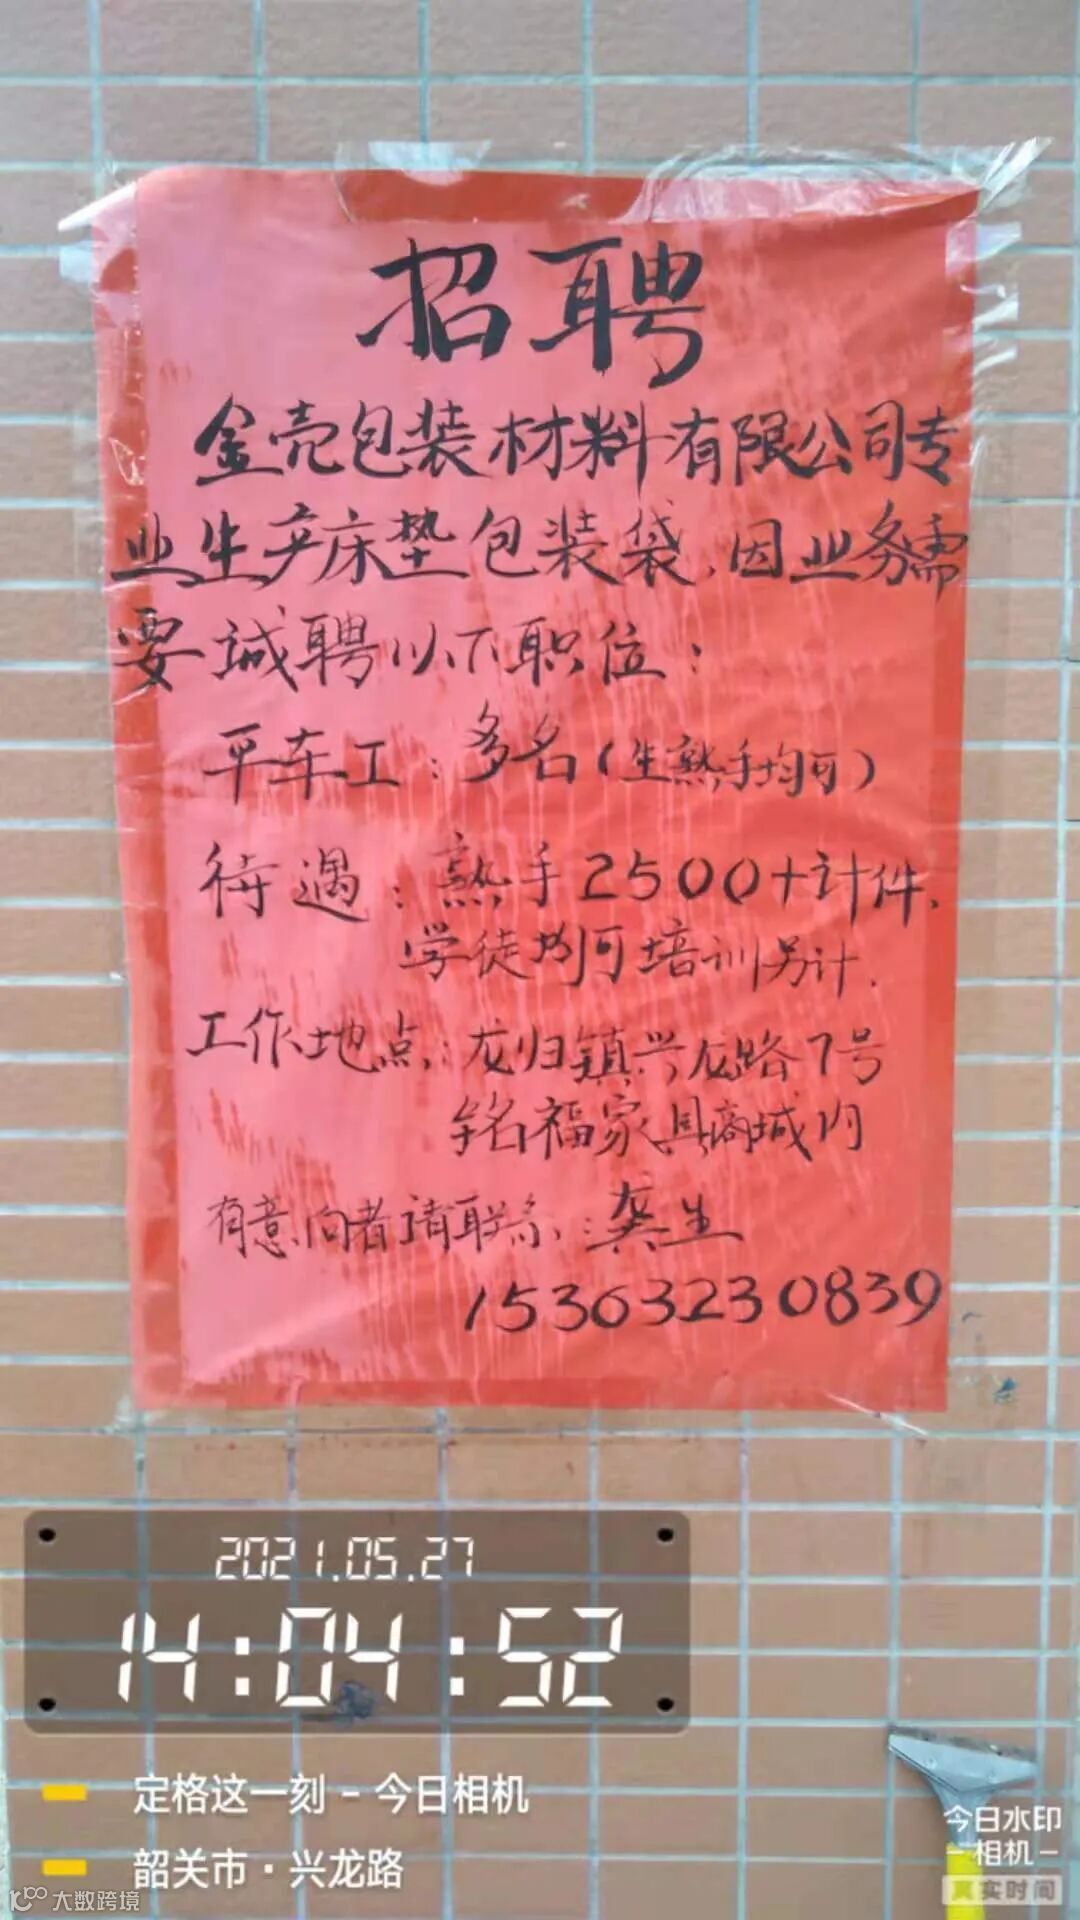 招聘
金壳包装材料有限公司专
业生产床垫包装袋,因业务需
要诚聘以下职位:
平车工:多名(生熟手均可)
待遇:熟手2500+计件.
学徒均可培训另计.
工作地点:龙归镇兴龙路7号
铭福家具商城内
有意向者请联系:龚生
15363230839
2021.05.27
14:04:52
定格这一刻 - 今日相机
韶关市·兴龙路
今日水印
-相机-
真实时间
大数跨境